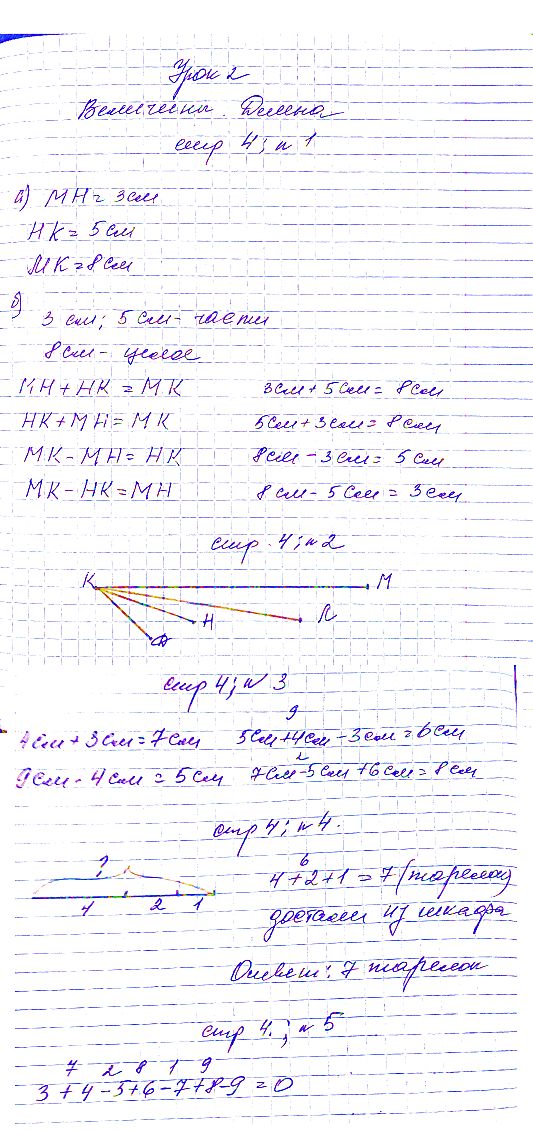 Урок 2
Величины. Длина
стр 4; n 1
а) МН = 3 см
НК = 5 см
МК = 8 см
б)
3 см; 5 см - части
8 см - целое
МН + НК = МК 3 см + 5 см = 8 см
НК + МН = МК 5 см + 3 см = 8 см
МК - МН = НК 8 см - 3 см = 5 см
МК - НК = МН 8 см - 5 см = 3 см
стр. 4; n 2
К М
Н Л
стр 4; N 3
9
4 см + 3 см = 7 см 5 см + 4 см - 3 см = 6 см
2
9 см - 4 см = 5 см 7 см - 5 см + 6 см = 8 см
стр 4; n 4.
? 6
4 + 2 + 1 = 7 (тарелок)
4 2 1 достали из шкафа
Ответ: 7 тарелок
стр 4.; n 5
7 2 8 1 9
3 + 4 - 5 + 6 - 7 + 8 - 9 = 0